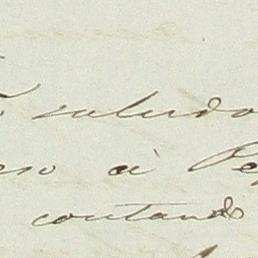 saludo
à Pe
contando